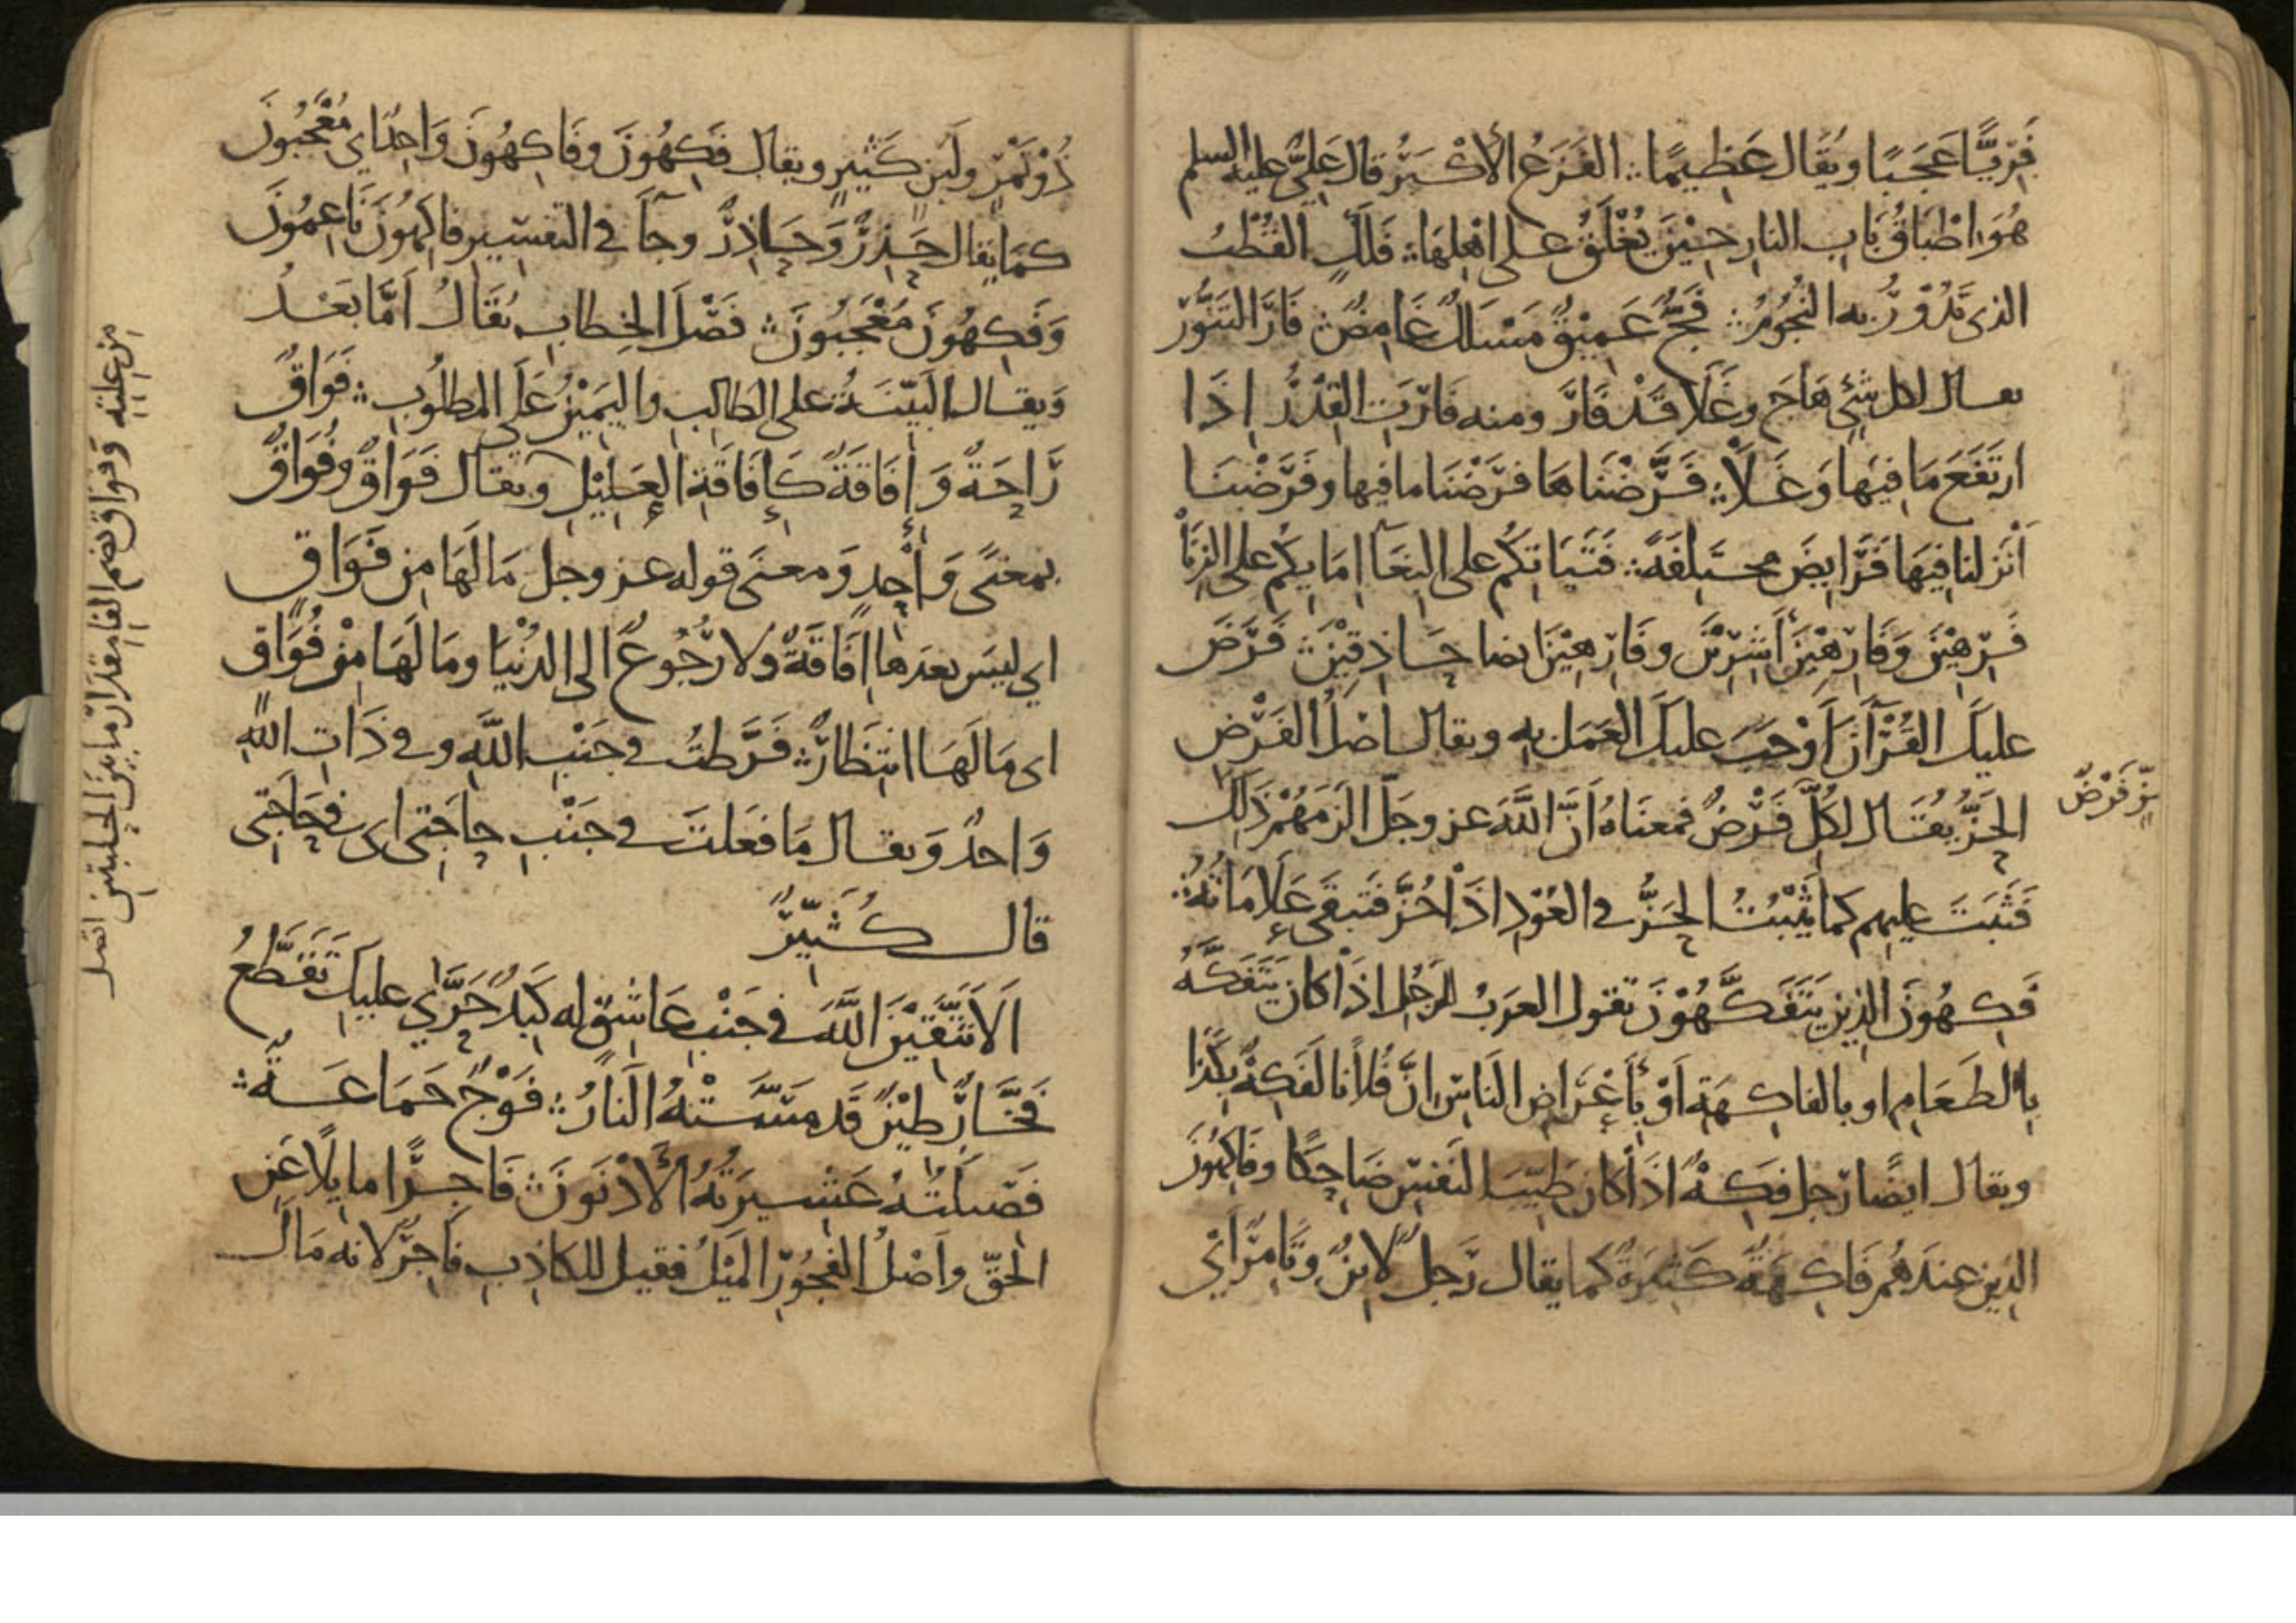 فَرِيًّا عَجَبًا ويُقَال عَظِيمًا ؞ الفَزَعُ الأكْبَرُ قال عَلِيٌّ عليه السلم
هُوَ اطْبَاقُ بَابِ النارِ حِيْنَ يُغْلَقُ على اهْلِهَا ؞ فَلَكٍ القُطْبُ
الذى تَدُوْرُ به النُجُوْمُ ؞ فَجٍّ عَمِيْقٍ مَسْلَكٌ غَامِضٌ ؞ فَارَ التَنُّوْرُ
يقال لكل شَئٍ هَاجَ وغَلَا قَدْ فَارَ ومنه فَارَتِ القِدْرُ اِذَا
ارتَفَعَ مَا فِيهَا وَغَلَا ؞ فَرَّضْنَاهَا فرَضْنَا ما فيها وفَرَّضْنَا
اَنْزلنا فِيهَا فَرَايِضَ مختَلِفَةً ؞ فَتَيَاتِكُم على البِغَآ اِمَايِكُم على الزِنَأ
فَرِهِيْنَ وَفَارِهِيْنَ أَشِرِيْنَ وفَارِهِيْنَ ايضا حَاذِقِيْنَ ؞ فَرَضَ
عليكَ القُرْآنَ اَوْجَبَ عليكَ العَمَل بِهِ ويقال اصْلُ الفَرْضِ
الحَزُّ يقَال لكُلِّ فَرْضٌ فمعنَاهُ اَنَّ اللَّهَ عز وجلّ الزَمَهُمْ ذَلِكَ
حزّ فَرْضٌ
فَثَبَتَ عليهم كما يَثْبُتُ الحَزُّ في العُوْدِ اذَا حُزَّ فَتَبقَى عَلَامَاتُهُ ؞
فَكِهُونَ الذين يَتَفَكَّهُوْنَ تقول العَرَبُ للرَجُلِ اذَا كان يَتَفَكَّهُ
بِالطَعَامِ او بالفاكِهَةِ اَوْ بِأَعْرَاضِ النَاسِ اِنَّ فُلاَنًا لَفَكِهٌ بِكَذَا
ويقال ايضًا رَجل فَكِهٌ اذَا كان طَيِّبَ النَفْسِ ضَاحِكًا وفَاكِهُوْنَ
الذين عندَهُم فَاكِهَةٌ كَثِيْرَةٌ كما يقال رَجل لَابِنٌ وتَامِرٌ اَىْ
ذُوْ تَمْرٍ ولَبَنٍ كَثِيْرٍ ويقال فَكِهُونَ وفَاكِهُونَ وَاحِدٌ اي مُعْجَبُونَ
كمَا يقال حَذِرٌ وَحَاذِرٌ وجآ في التفسِيرِ فاكِهُوْنَ نَاعِمُوْنَ
وَفَكِهُونَ مُعْجَبُونَ ؞ فَصْلَ الخِطابِ يُقَالُ اَمَّا بَعْدُ
وَيقال البَيّنَةُ على الطالِبِ واليَمِيْنُ عَلَى المطلُوْبِ ؞ فَوَاقٌ
رَاحَةٌ وَإفَاقَةٌ كَإفَاقَةِ العَلِيْلِ ويقال فَوَاقٌ وفُوَاقٌ
بمعنًى وَاحِدٍ وَمعنَى قوله عز وجل مَا لَهَا مِن فَوَاقٍ
اى ليسَ بعدَها اِفَاقَةٌ ولا رُجُوعٌ الى الدُنْيَا ومَا لَهَا مِنْ فُوَاقٍ
اى مَا لَهَا انتِظَارٌ ؞ فَرَّطتُ في جَنْبِ اللَّهِ وفي ذَاتِ اللَّهِ
وَاحدٌ وَيقال مَا فَعَلتَ في جَنْبِ حاجَتى اى في حَاجَتِى
قال كُثَيِّرٌ
اَلَا تَتَّقِيْنَ اللَّهَ في جَنْبِ عَاشِقٍ له كَبِدٌ حَرَّى عليكِ تَقَطَّعُ
فَخَّارٌ طِيْنٌ قَد مَسَّتْهُ النَارُ ؞ فَوْجٌ جَمَاعَةٌ ؞
فَصِيلَتُهُ عَشِيرَتُهُ الأَدْنَوْنَ ؞ فَاجِرًا مايِلًا عَنِ
الحَقِّ واَصْلُ الفُجُوْرِ المَيْلُ فقيل للكاذِبِ فَاجِرٌ لانه مَالَ
وفُوَاق بضم الفا مِقدَارُ مابينَ الحلبتين